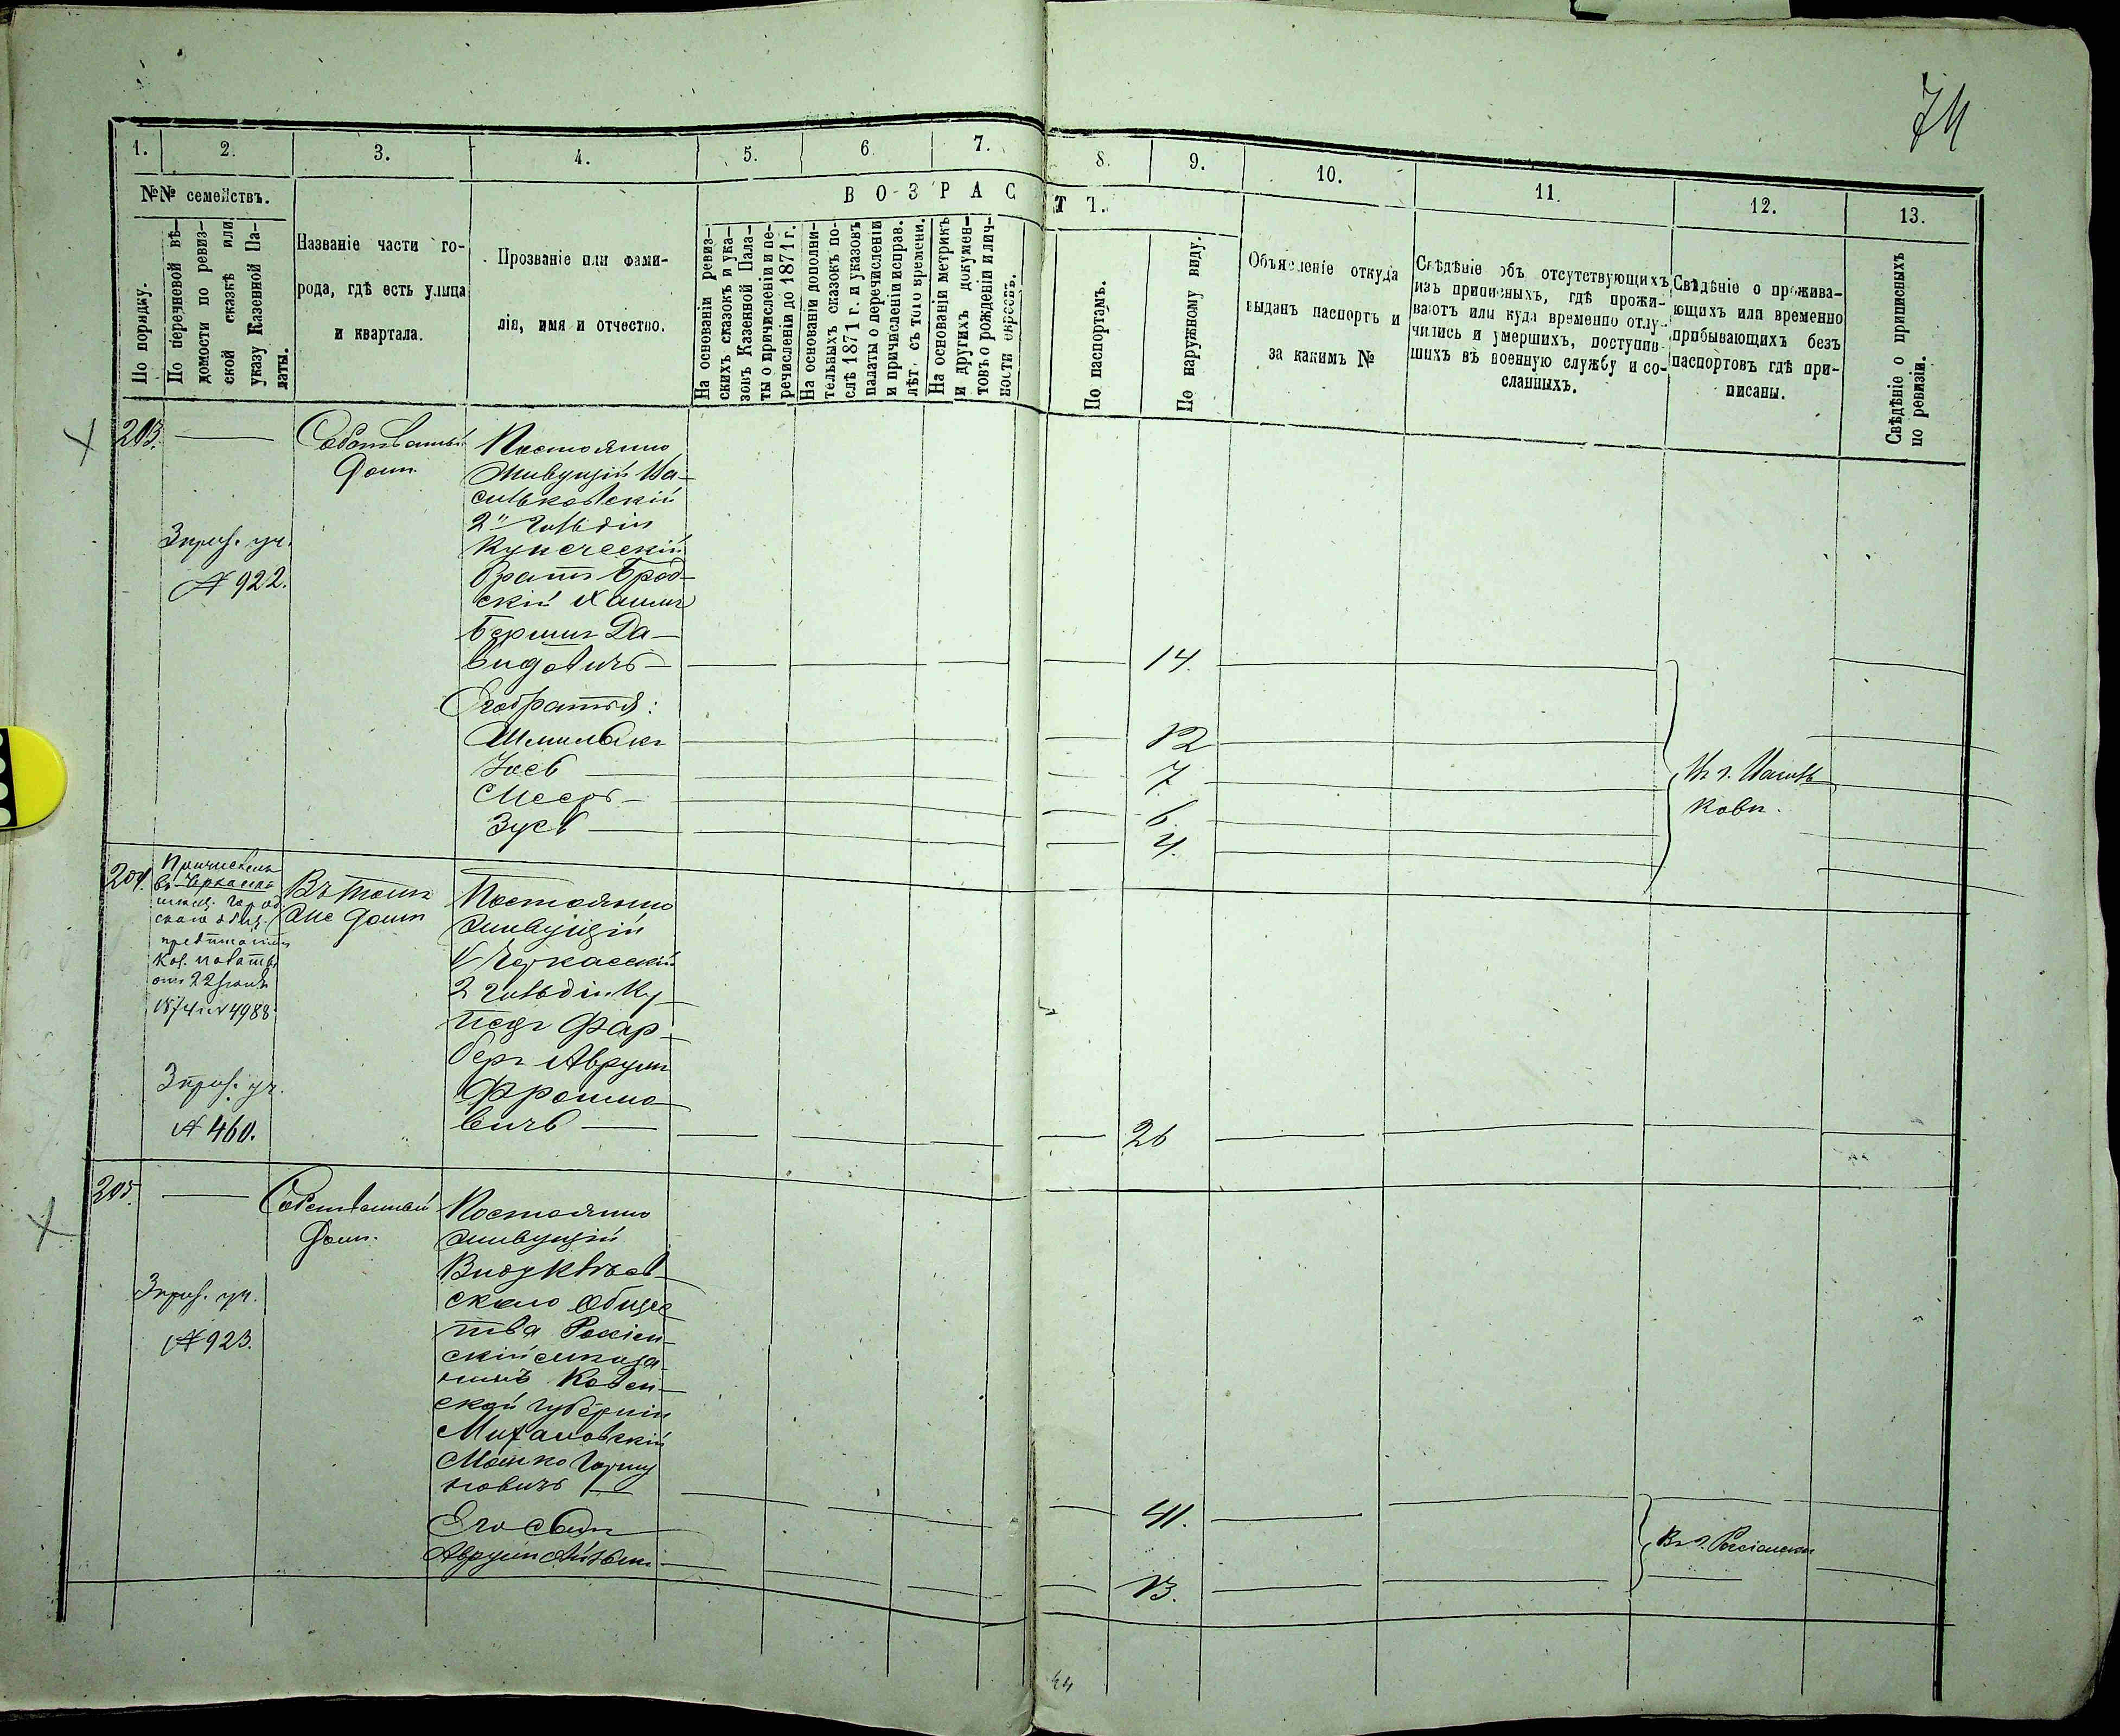 74
1. 2. 3. 4. 5. 6. 7. 8. 9. 10. 11. 12. 13.
№№ семействъ.
По порядку.
По перечневой вѣ-
домости по ревиз-
ской сказкѣ или
указу Казенной Па-
латы.
Названіе части го-
рода, гдѣ есть улица
и квартала.
Прозваніе или фами-
лія, имя и отчество.
ВОЗРАСТЪ.
На основаніи ревиз-
скихъ сказокъ и ука-
зовъ Казенной Пала-
ты о причисленіи и пе-
речисленіи до 1871 г.
На основаніи дополни-
тельныхъ сказокъ по-
слѣ 1871 г. и указовъ
палаты о перечисленіи
и причисленіи исправ.
лѣт. съ того времени.
На основаніи метрикъ
и другихъ докумен-
товъ о рожденіи и лич-
ности евреевъ.
По паспортамъ.
По наружному виду.
Объясненіе откуда
выданъ паспортъ и
за какимъ №
Свѣдѣніе объ отсутствующихъ
изъ приписныхъ, гдѣ прожи-
ваютъ или куда временно отлу-
чились и умершихъ, поступив-
шихъ въ военную службу и со-
сланныхъ.
Свѣдѣніе о прожива-
ющихъ или временно
прибывающихъ безъ
паспортовъ гдѣ при-
писаны.
Свѣдѣніе о приписныхъ
по ревизіи.
203.
3 приз. уч.
№ 922.
Собственный
домъ.
Постоянно
живущій Ва-
сильковскій
2й гильдіи
Купеческій
братъ Брод-
скій Хаимъ
Беришъ Да-
видовичъ 14.
Его братья:
Шмилыкъ 12
Іосъ 7
Мееръ 6.
Зусь 4.
Въ г. Василь-
ковѣ.
204.
Причисленъ
въ Черкасы
от 22 Іюня
1874 г. № 4988
3 приз. уч.
№ 460.
Въ томъ
же домѣ
Постоянно
живущій
Черкасскій
2 гильдіи Ку-
пецъ Фар-
беръ Аврумъ
Фроимо-
вичъ 26
205.
3 приз. уч.
№ 923.
Собственный
домъ.
Постоянно
живущій
скаго общес
тва Россіен-
скій мѣща-
нинъ Ковен-
ской губерніи
Мошко
новичъ 41.
Его сынъ
Аврумъ 13.
Въ г. Россіенахъ
44